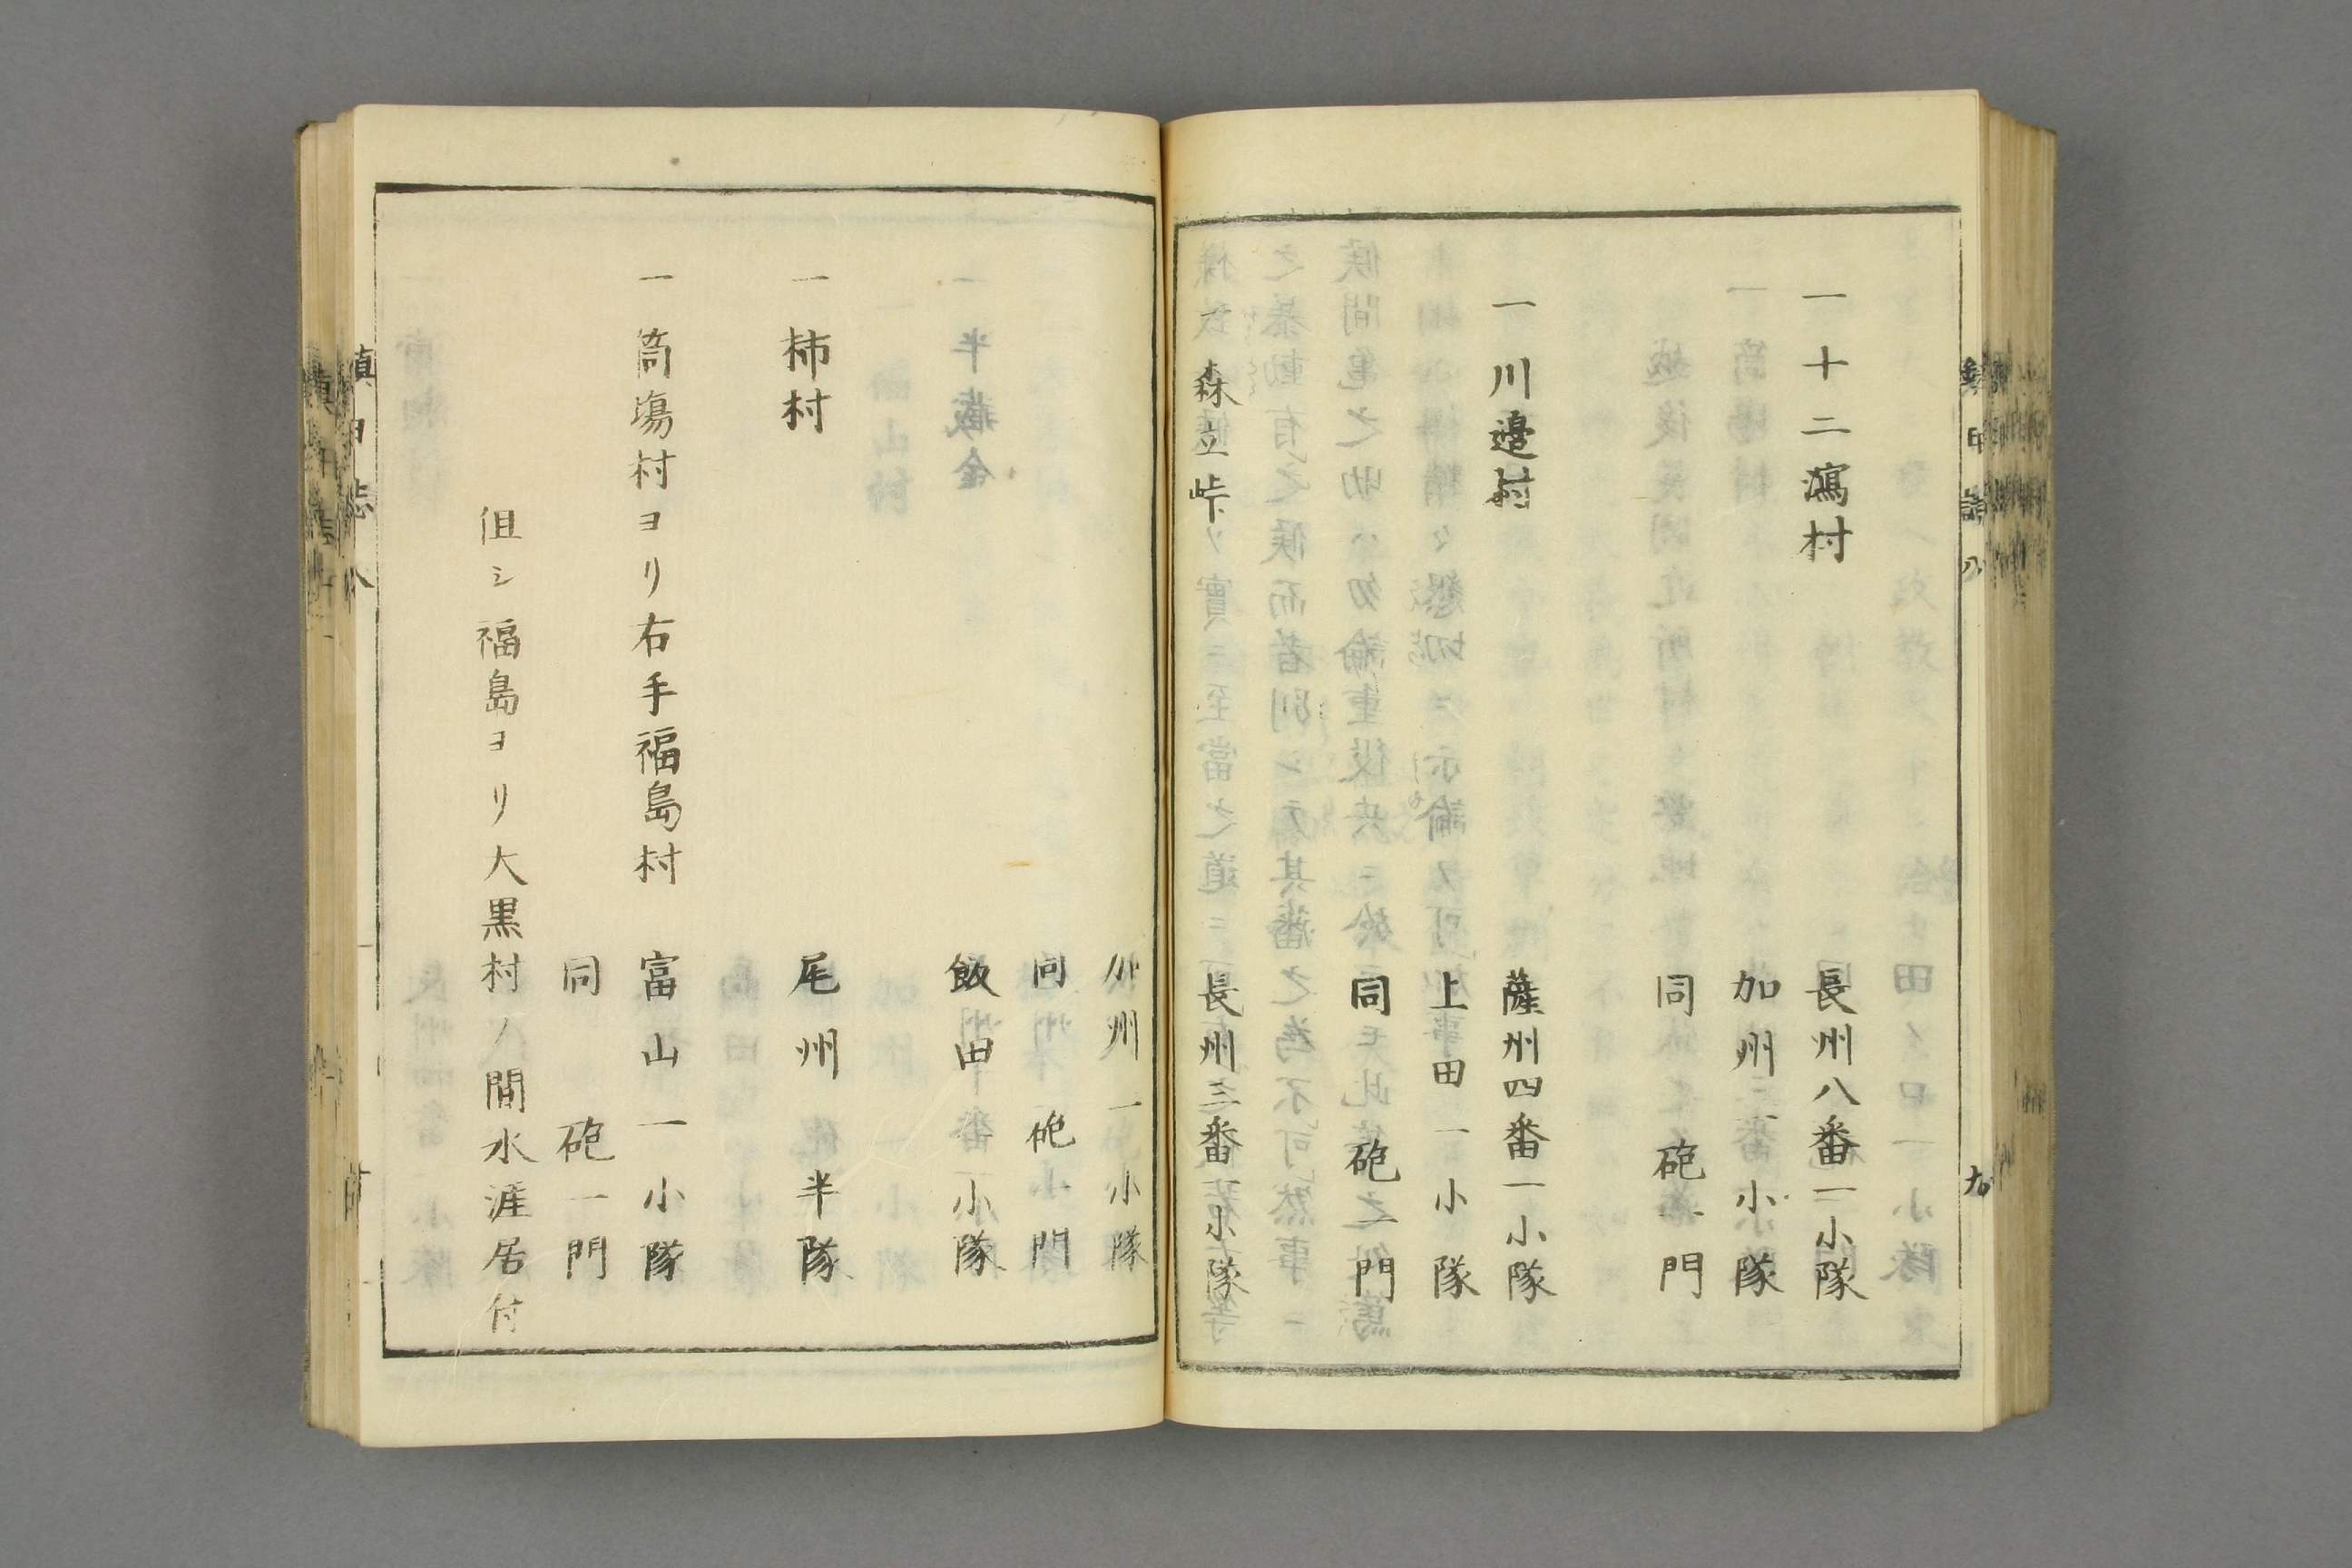 一十二瀉村
長州八番一小隊
加州 小隊
同 砲一門
一川邊村
薩州四番一小隊
上田一小隊
同 砲一門
森立峠
長州三番一小隊
加州一小隊
同 砲 門
飯田 小隊
一柿村
尾州 半隊
一筒塲村ヨリ右手福島村
富山一小隊
同 砲一門
但シ福島ヨリ大黒村ノ間水涯居付